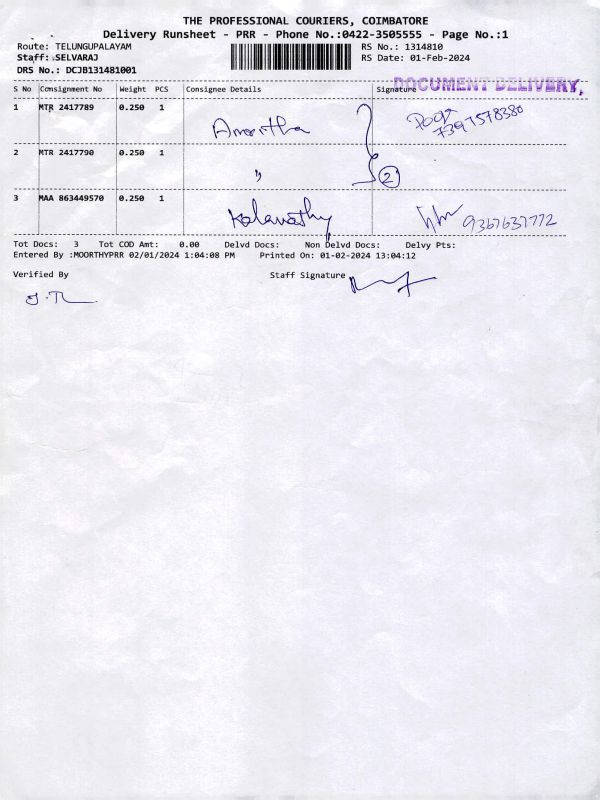 THE PROFESSIONAL COURIERS, COIMBATORE
Delivery Runsheet - PRR - Phone No.:0422-3505555 - Page No.:1
Route: TELUNGUPALAYAM RS No.: 1314810
Staff: SELVARAJ RS Date: 01-Feb-2024
DRS No.: DCJB131481001
DOCUMENT DELIVERY,
S No Consignment No Weight PCS Consignee Details Signature
1 MTR 2417789 0.250 1 Amirtha Pooja
7397578380
2 MTR 2417790 0.250 1 " 2
3 MAA 863449570 0.250 1 Kalavathy 9367637772
Tot Docs: 3 Tot COD Amt: 0.00 Delvd Docs: Non Delvd Docs: Delvy Pts:
Entered By :MOORTHYPRR 02/01/2024 1:04:08 PM Printed On: 01-02-2024 13:04:12
Verified By Staff Signature